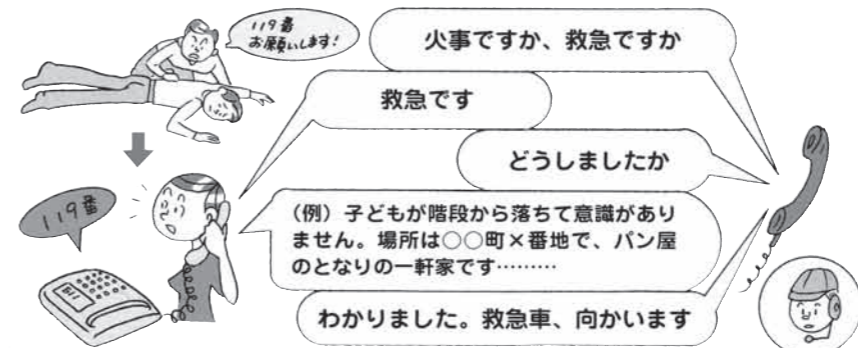 119番
お願いします!
火事ですか、救急ですか
救急です
どうしましたか
119番
（例）子どもが階段から落ちて意識があり
ません。場所は○○町×番地で、パン屋
のとなりの一軒家です………
わかりました。救急車、向かいます